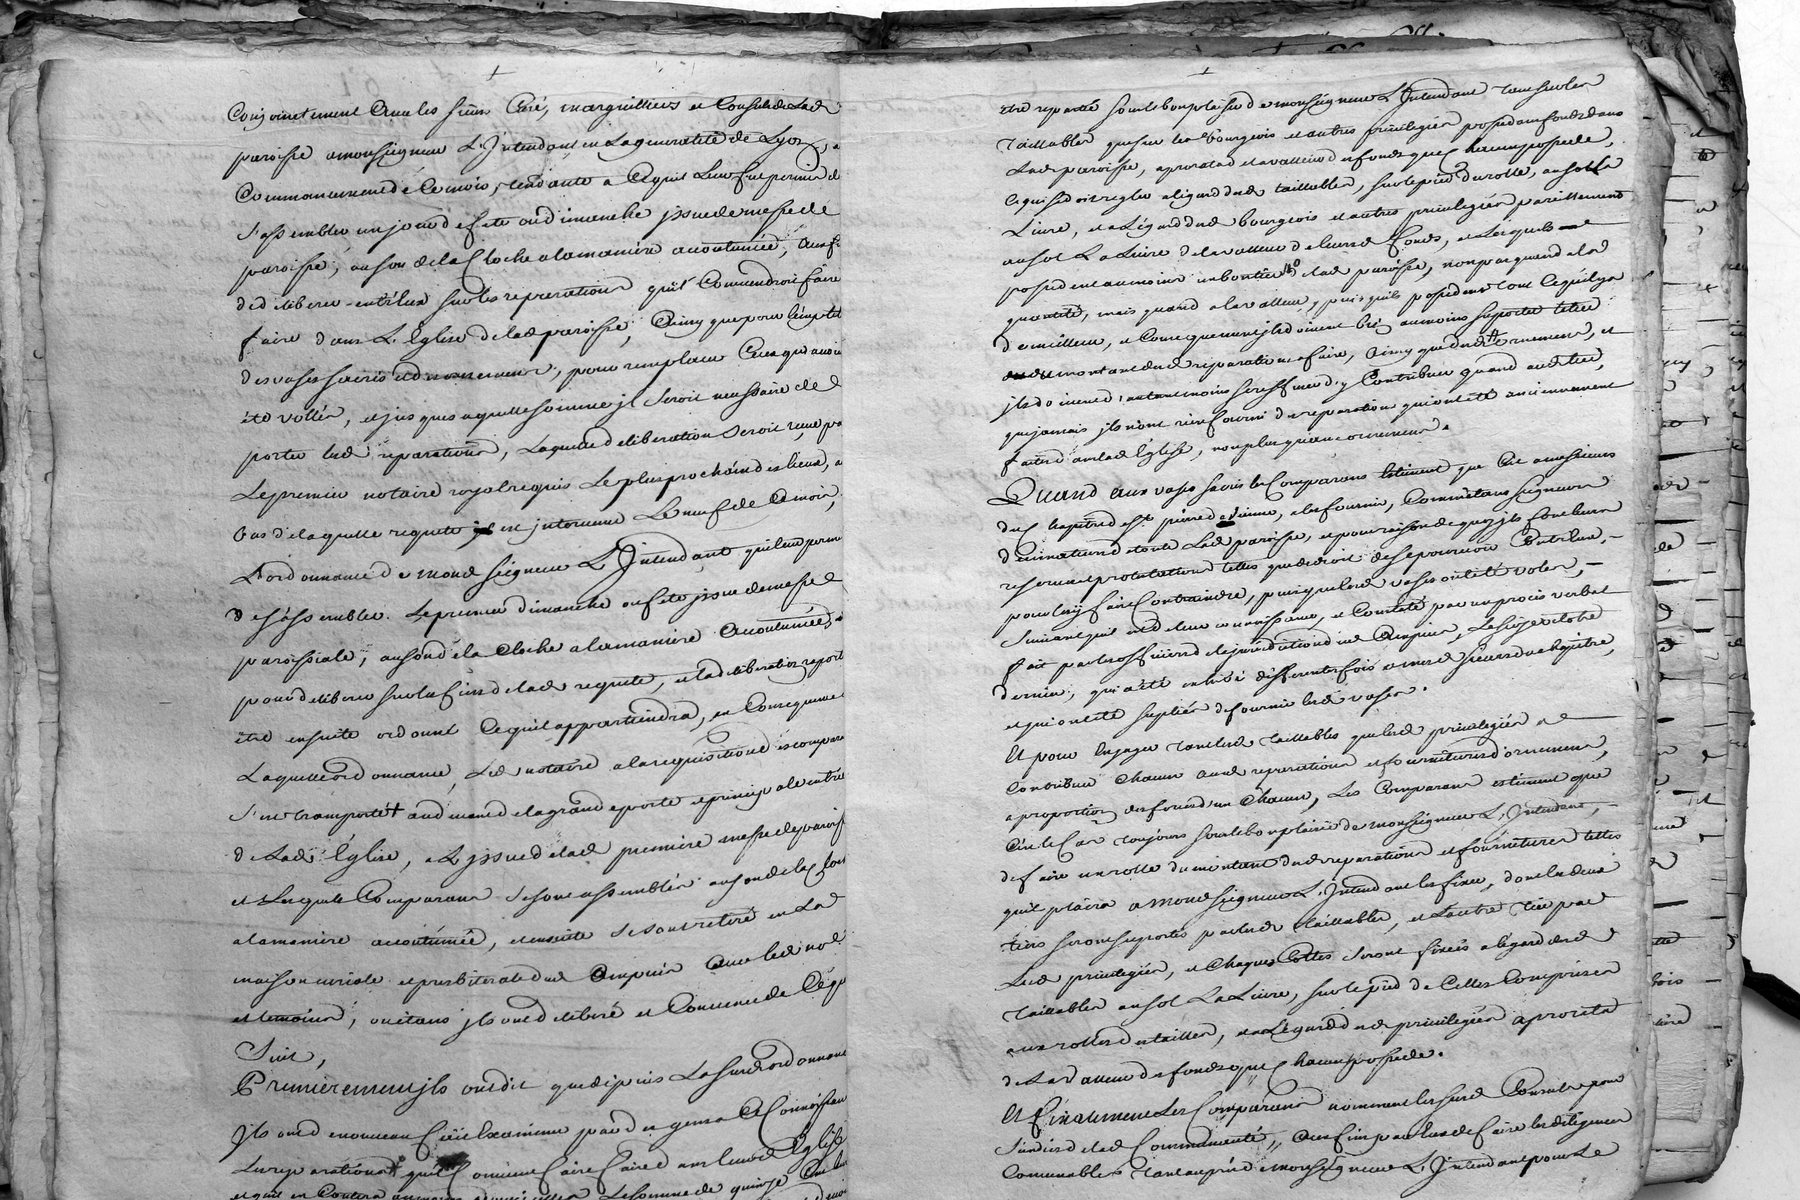 Conjointement Avec les sieurs Curé, marguilliers et Consuls de Lad
paroisse a monseigneur L'Intendant en La generalité de Lyon, a
Commancement de Ce mois, tendante a Ce quil Leur fut permis de
s'assembler un jour de fete ou dimanche jssue de messe de
paroisse, au son de la Cloche a la maniere acoutumée, aux f
de deliberer entr'eux sur les reparations quil Conviendroit faire
faire dans L'Eglise de lad paroisse, Ainsy que pour l'emplet
des vases sacrés et d'ornements, pour remplacer Ceux qui avoi
été vollés, et jusques a quelle somme jl seroit necessaire de
porter lesd reparations, Laquelle deliberation seroit reçue pa
Le premier notaire royal requis Le plus prochain des lieux, a
bas de laquelle requete est jntervenue Le neuf de Ce mois,
L'ordonnance de mond seigneur L'Intendant qui leur perm
de s'assembler Le premier dimanche ou fete jssue de messe
paroissiale, au son de la Cloche a la maniere Acoutumée,
pour deliberer sur les fins de lad requete, et la deliberation raport
être ensuite ordonné Ce quil appartiendra, en Consequence
Laquelle ordonnance, Led notaire a la requisition des compara
s'est transporté au devant de la grande porte et principale entrée
de Lad Eglise, et L'jssue de lad premiere messe de paroiss
et Lesquels Comparans se sont assemblés au son de la Cloch
a la maniere acoutumée, et ensuite se sont retiré en La
maison curiale et presbiterale dud Ampuis Avec led no.e
et temoins, ou etans jls ont deliberé et Convenu de Ce qu
Suit,
Premierement jls ont dit que depuis La susd ordonnance
Jls ont de nouveau fait Examiner par des gens a Connoissan
Les reparations quil Convient faire faire dans leurd Eglise
et quil en Coutera au moins La somme de quinze Cent
être repartie sous le bon plaisir de monseigneur L'Intendant tant sur les
Taillables que sur les bourgeois et autres privilegiés possedans fonds dans
Lad paroisse, a prorata de la valleur des fonds que Chacun possede,
Ce qui se doit regler a l'egard desd taillables, sur le pied du rolle, au sol la
Livre, et a L'égard desd bourgeois et autres privilegiés pareillement
au sol La Livre de la valleur de leurs fonds, et Lesquels
possedent au moins un bon tiers de lad paroisse, non pas quand a la
quantité, mais quand a la valleur, puis quils possedent tout Ce quil y a
de meilleur, et Consequemment jls doivent bien au moins suporter le tiers
du montant desd reparations a faire, Ainsy que desd ornements, et
jls doivent d'autant moins se reffuser d'y Contribuer quand aud tiers,
que jamais jls n'ont rien fourni des reparations qui ont été anciennement
faites dans lad Eglise, non plus qu'aux ornements.
Quand aux vases sacrés les Comparans Estiment que C'est a messieurs
du Chapitre de St pierre de vienne, a les fournir, Comme etans seigneurs
decimateurs de toute Lad paroisse, et pour raison de quoy jls font leurs
reserves et protestations telles que de droit de se pourvoir Contr'eux,
pour les y faire Contraindre, puis que lesd vases ont été volés,
suivant quil est de leur connoissance, et Constaté par un procès verbal
fait par les officiers de la jurisdiction dud Ampuis, Le seize octobre
dernier, qui a été exhibé differentes fois a mesd sieurs du chapitre,
et qui ont été supliés de fournir lesd vases.
Et pour Engager tant lesd taillables que lesd privilegiés a
Contribuer Chacun auxd reparations et fournitures d'ornements,
a proportion des fonds d'un Chacun, Les Comparans estiment que
C'est le Cas toujours sous le bon plaisir de monseigneur L'Intendant,
de faire un rolle du montant desd reparations et fournitures telles
quil plaira a mond seigneur L'Intendant les fixer, dont les deux
tiers seront suportés par lesd taillables, et L'autre tiers par
Lesd privilegiés, et Chaques Cottes seront fixées a l'egard desd
taillables au sol La Livre, sur le pied de Celles Comprises
aux rolles des tailles, et a L'égard desd privilegiés a prorata
de La valleur des fonds que Chacun possede.
Et finalement Les Comparans nomment les susd Consuls pour
sindics de lad Communauté, Aux fins par eux de faire les diligences
Convenables tant auprès de monseigneur L'Intendant pour Le